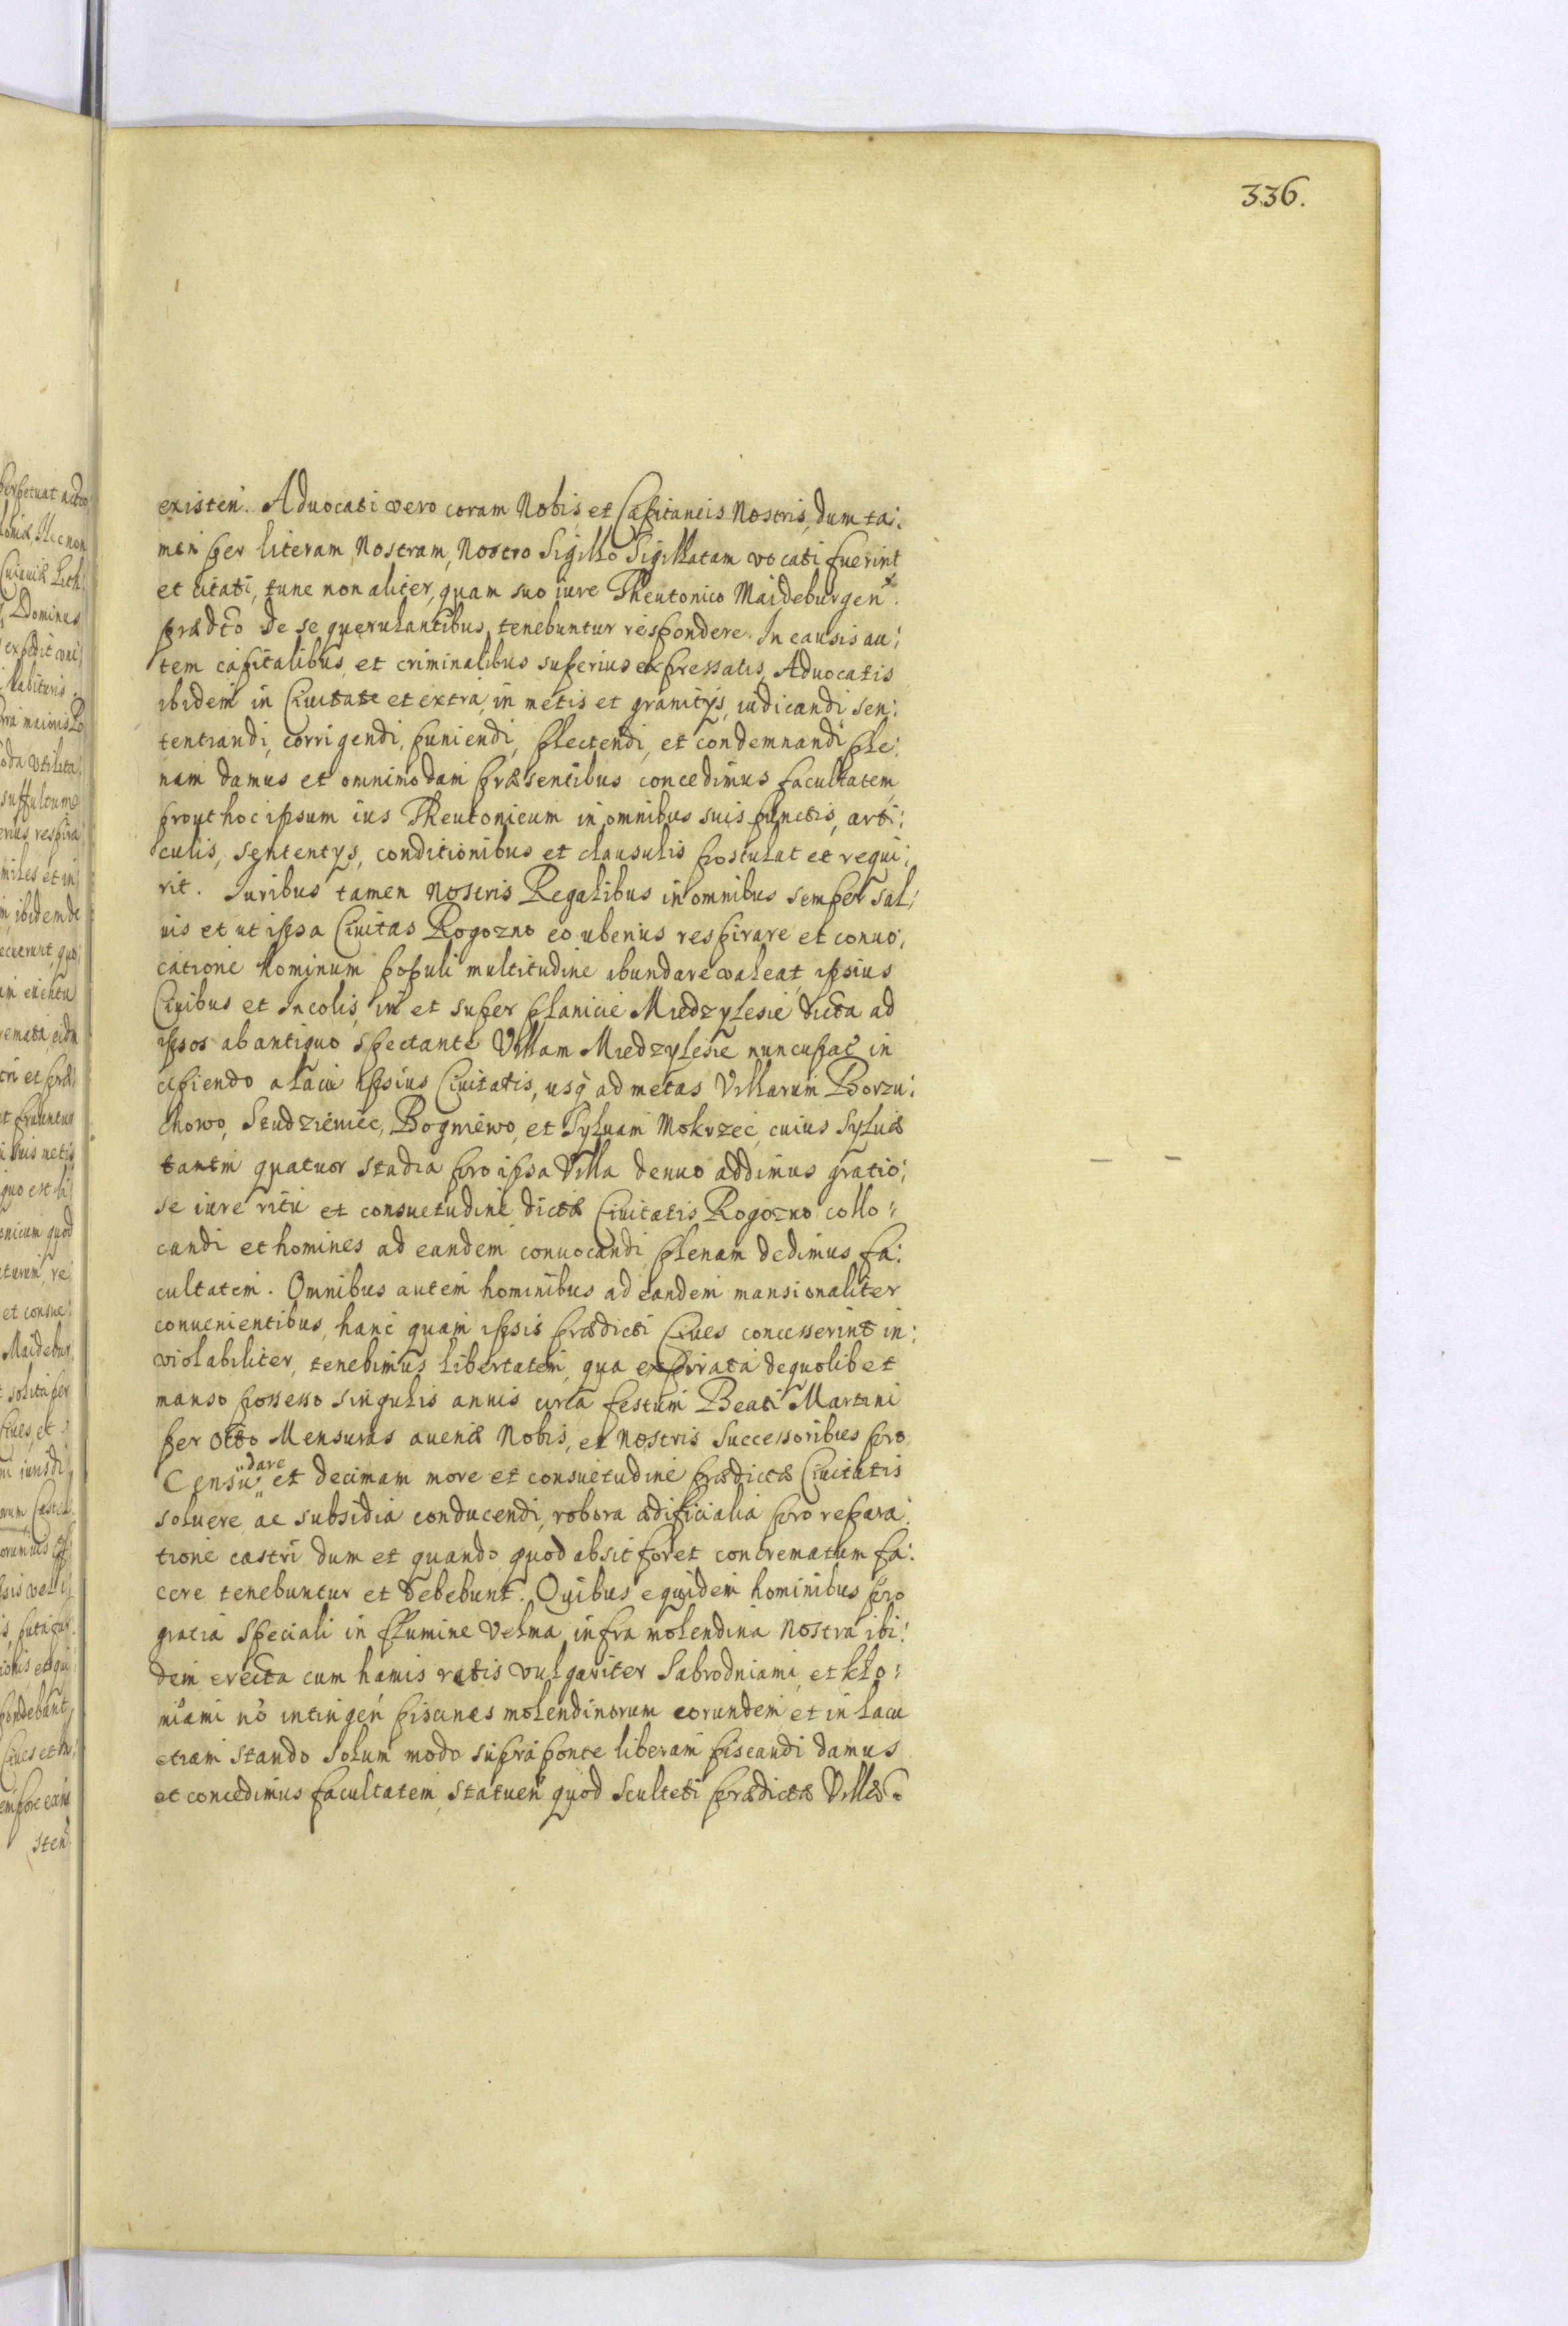 336.
existen. Advocati vero coram Nobis et Capitaneis Nostris, dum ta:
men per literam Nostram, Nostro Sigillo Sigillatam vocati fuerint
et citati, tunc non aliter, quam suo iure Theutonico Maideburgen.
prædto de se querulantibus, tenebuntur respondere. In causis au:
tem capitalibus et criminalibus superius expressatis, Advocatis
ibidem in Civitate et extra, in metis et granitys, iudicandi sen:
tentiandi, corrigendi, puniendi, plectendi, et condemnandi ple:
nam damus et omnimodam præsentibus concedimus facultatem,
prout hoc ipsum ius Theutonicum in omnibus suis punctis, arti:
culis, sententys, conditionibus et clausulis postulat et requi:
rit. Iuribus tamen nostris Regalibus in omnibus semper sal:
uis et ut ipsa Ciuitas Rogozno eo uberius respirare et conuo:
catione hominum populi multitudine abundare valeat, ipsius
Ciuibus et Incolis, in et super planicie Miedzylesie dicta ad
ipsos ab antiquo spectante Villam Miedzylesie nuncupat in
cipiendo a lacu ipsius Ciuitatis, usq ad metas Villarum Borzu:
chowo, Studzieniec, Bogniewo, et Sylvam Mokrzec, cuius Syluæ
tantm quatuor stadia pro ipsa Villa denuo addimus gratio:
se iure ritu et consuetudine dictæ Ciuitatis Rogozno collo:
candi et homines ad eandem conuocandi plenam dedimus fa:
cultatem. Omnibus autem hominibus ad eandem mansionaliter
conuenientibus, hanc quam ipsis prædicti Ciues concesserint in:
violabiliter, tenebimus libertatem, qua expirata de quolibet
manso possesso singulis annis circa festum Beati Martini
per octo Mensuras auenæ Nobis, et nostris Successoribus pro
Censu dare et decimam more et consuetudine prædictæ Ciuitatis
soluere ac subsidia conducendi, robora ædificialia pro repara:
tione castri dum et quando quod absit foret concrematum fa:
cere tenebuntur et debebunt. Quibus equidem hominibus pro
gratia speciali in flumine Velma infra molendina Nostra ibi:
dem erecta cum hamis retis vulgariter Sabrodniami, et klo:
niami no intingen piscines molendinorum eorundem et in lacu
etiam stando Solum modo supra ponte liberam piscandi damus
et concedimus facultatem, statuen quod Sculteti prædictæ Villæ